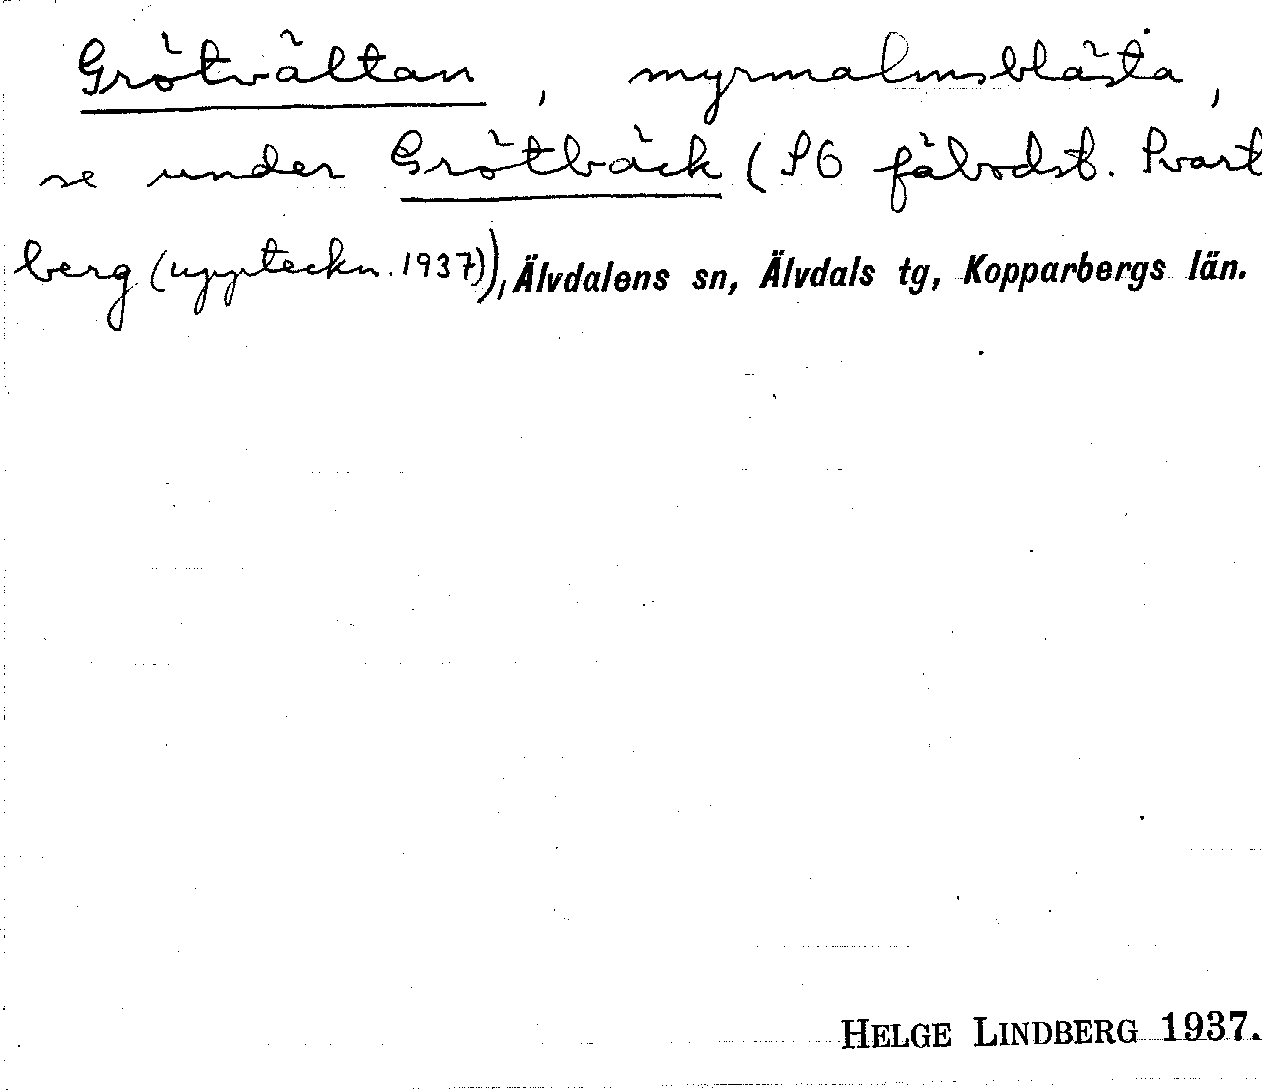 Grötvältan, myrmalmsblästa,
se under Grötbäck (S6 fäbodst. Svart
berg (uppteckn. 1937)), Älvdalens sn, Älvdals tg, Kopparbergs län.
HELGE LINDBERG 1937.